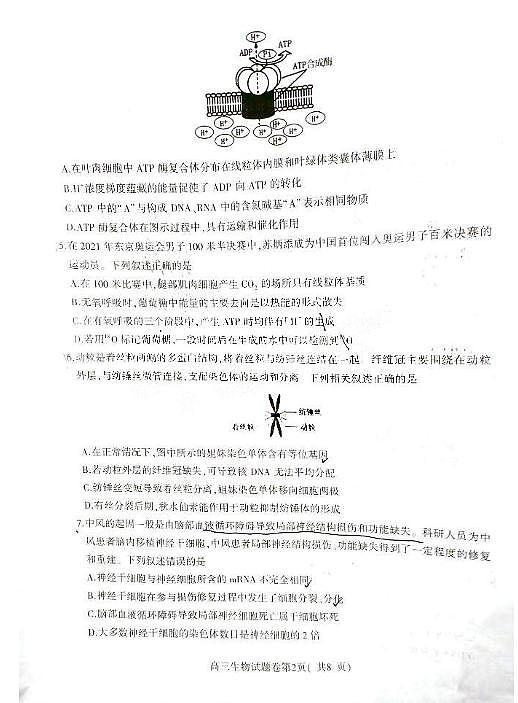 H⁺
ADP
Pi
ATP
ATP合成酶
H⁺ H⁺ H⁺ H⁺ H⁺ H⁺ H⁺ H⁺
A.在叶肉细胞中 ATP 酶复合体分布在线粒体内膜和叶绿体类囊体薄膜上
B.H⁺浓度梯度蕴藏的能量促使了 ADP 向 ATP 的转化
C.ATP 中的“A”与构成 DNA、RNA 中的含氮碱基“A”表示相同物质
D.ATP 酶复合体在图示过程中,具有运输和催化作用
5.在 2021 年东京奥运会男子 100 米半决赛中,苏炳添成为中国首位闯入奥运男子百米决赛的
运动员。下列叙述正确的是
A.在 100 米比赛中,腿部肌肉细胞产生 CO₂ 的场所只有线粒体基质
B.无氧呼吸时,葡萄糖中能量的主要去向是以热能的形式散失
C.在有氧呼吸的三个阶段中,产生 ATP 时均伴有「H」的生成
D.若用¹⁸O 标记葡萄糖,一段时间后在生成的水中可以检测到¹⁸O
6.动粒是着丝粒两侧的多蛋白结构,将着丝粒与纺锤丝连结在一起。纤维冠主要围绕在动粒
外层,与纺锤丝微管连接,支配染色体的运动和分离。下列相关叙述正确的是
纺锤丝
着丝粒
动粒
A.在正常情况下,图中所示的姐妹染色单体含有等位基因
B.若动粒外层的纤维冠缺失,可导致核 DNA 无法平均分配
C.纺锤丝变短导致着丝粒分离,姐妹染色单体移向细胞两极
D.有丝分裂后期,秋水仙素能作用于动粒抑制纺锤体的形成
7.中风的起因一般是由脑部血液循环障碍导致局部神经结构损伤和功能缺失。科研人员为中
风患者脑内移植神经干细胞,中风患者局部神经结构损伤、功能缺失得到了一定程度的修复
和重建。下列叙述错误的是
A.神经干细胞与神经细胞所含的 mRNA 不完全相同
B.神经干细胞在参与损伤修复过程中发生了细胞分裂、分化
C.脑部血液循环障碍导致局部神经细胞死亡属于细胞坏死
D.大多数神经干细胞的染色体数目是神经细胞的 2 倍
高三生物试题卷第2页( 共8 页)